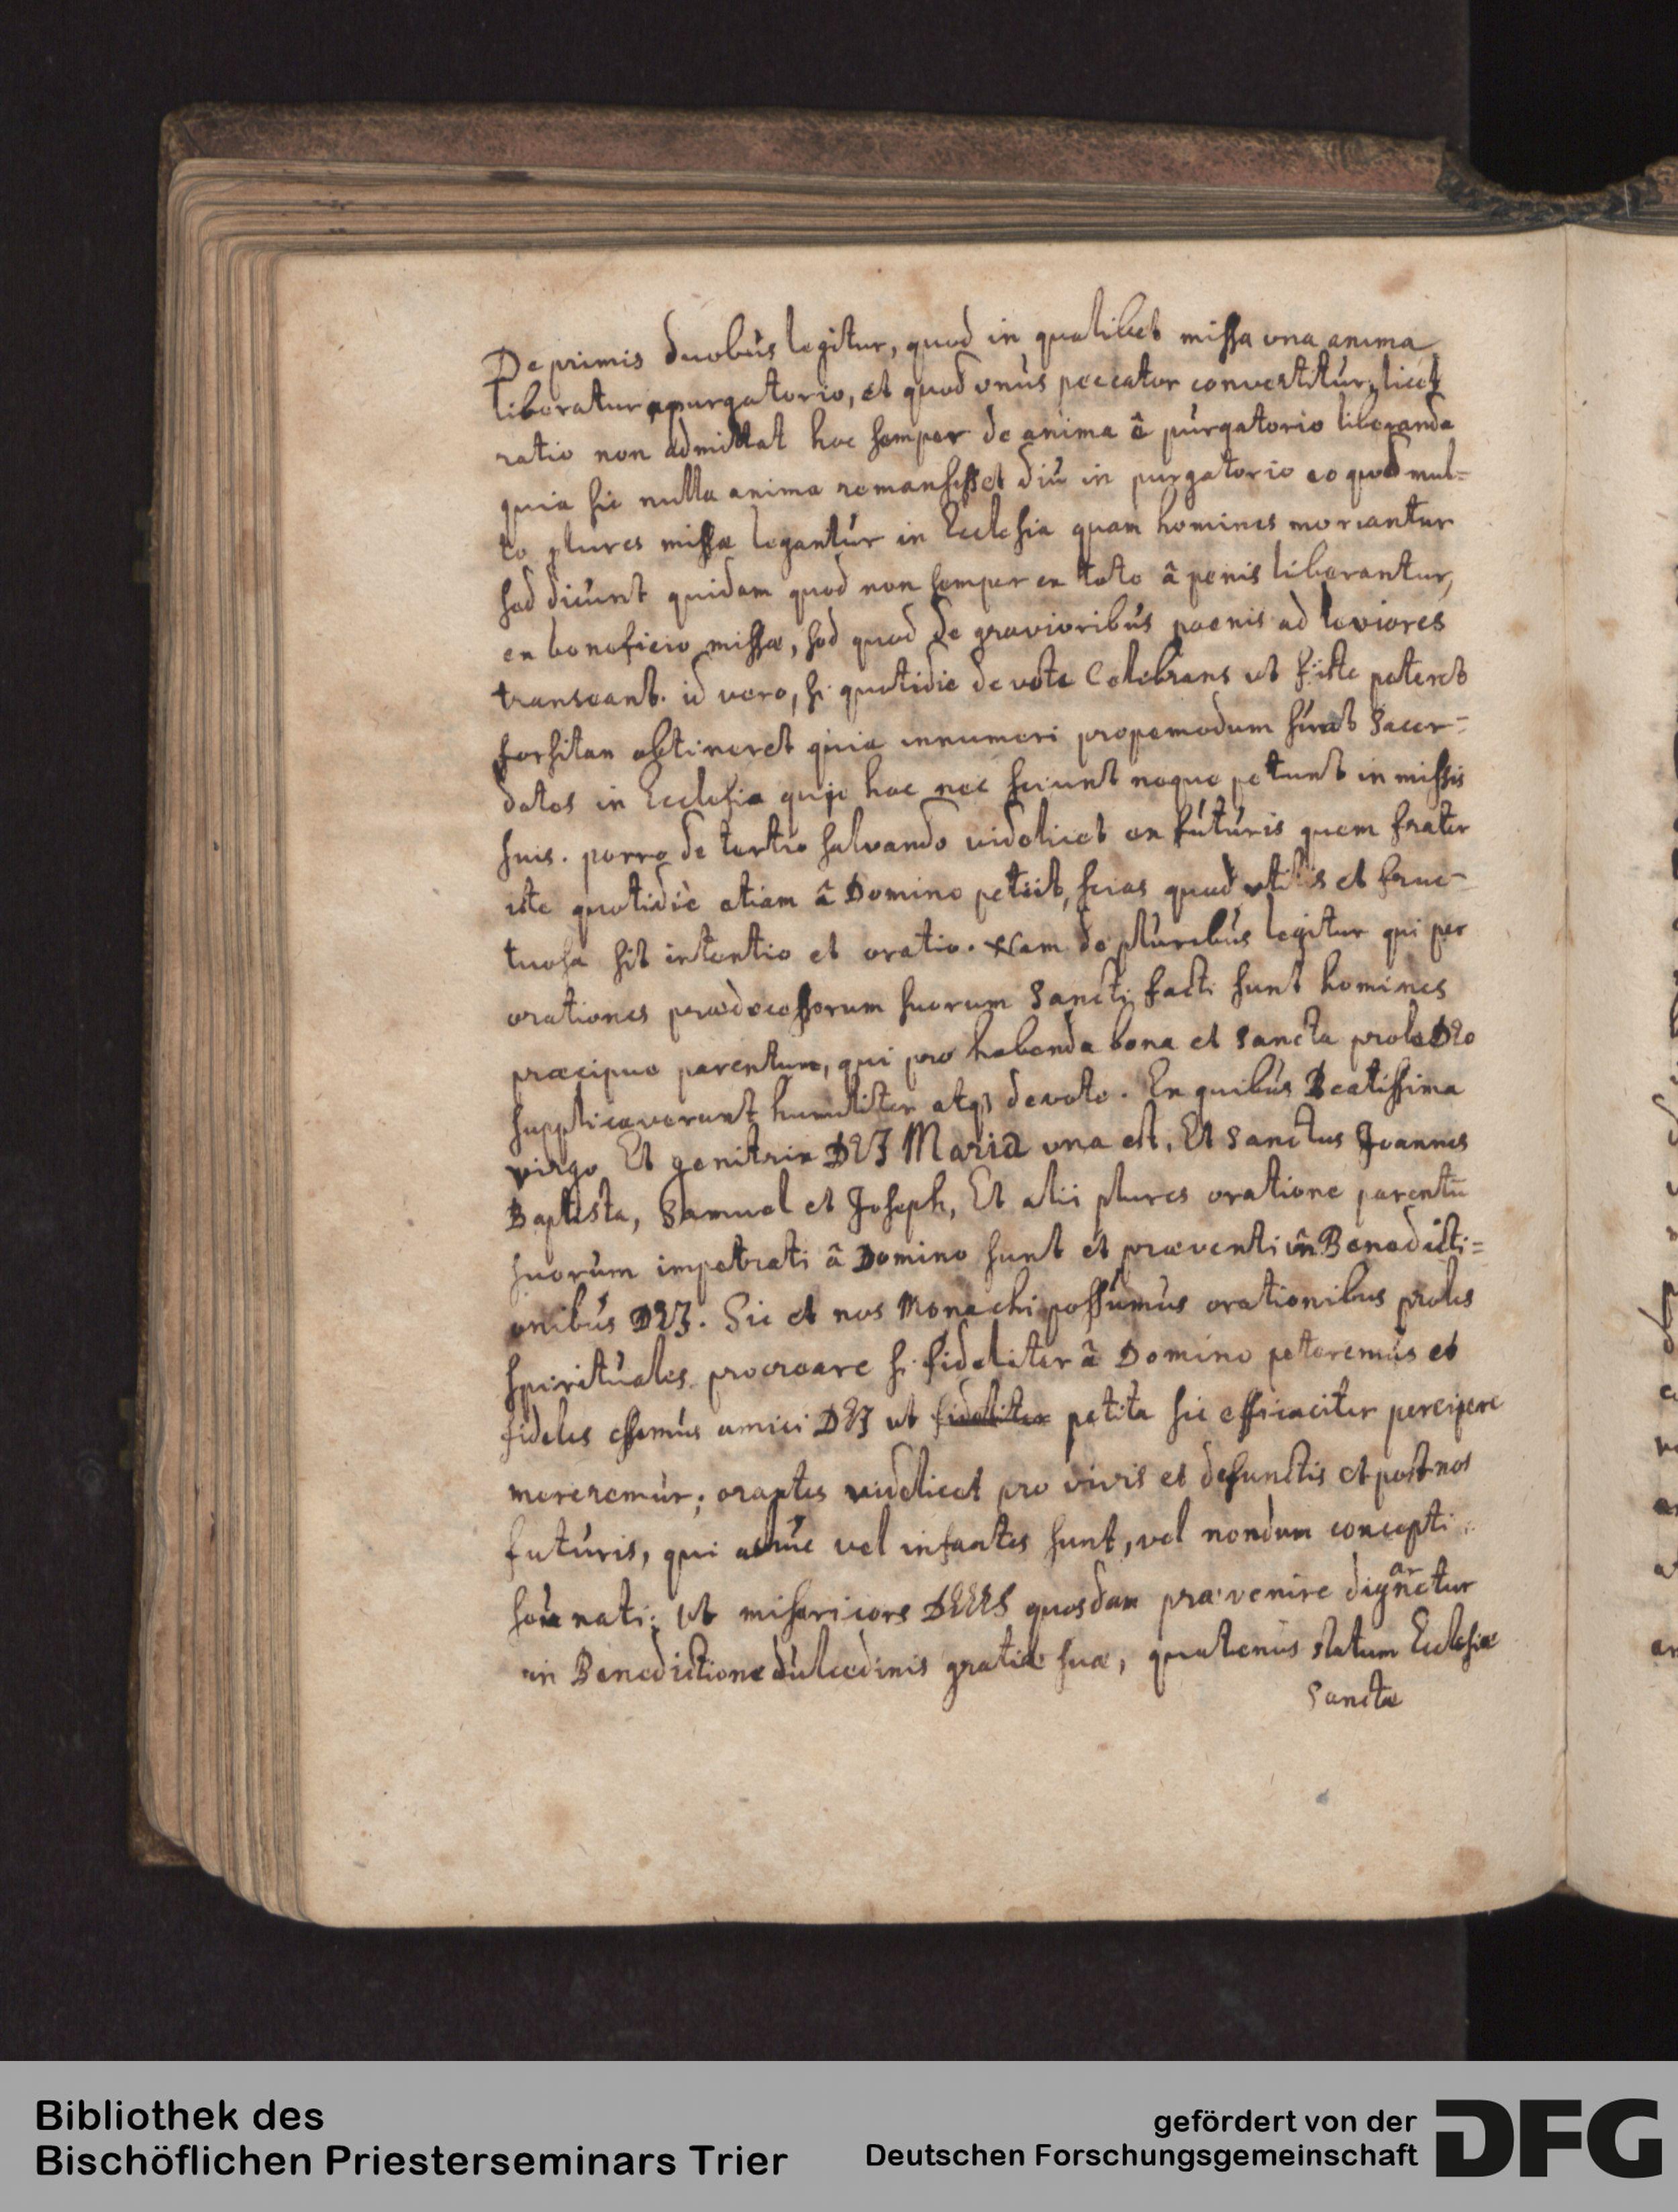 De primis duobus legitur, quod in qualibet missa una anima
liberatur a purgatorio, et quod unus peccator convertitur, licet
ratio non admittat hoc semper de anima ê purgatorio liberanda
quia sic nulla anima remansisset diu in purgatorio eo quod mul=
to plures missæ legantur in Ecclesia quam homines moriantur
sed dicunt quidam quod non semper ex toto â penis liberantur,
ex beneficio missæ, sed quod de gravioribus poenis ad leviores
transeant. id vero, si quotidie devote Celebrans ut iste peteret
forsitan obtineret quia innumeri propemodum sunt Sacer=
dotes in Ecclesia qui hoc nec sciunt neque petunt in missis
suis. porro de tertio salvando videlicet ex futuris quem frater
iste quotidiè etiam â Domino petiit, scias quod utilis et fruc-
tuosa sit intentio et oratio. Nam de pluribus legitur qui per
orationes prædecessorum suorum Sancti facti sunt homines
præcipue parentum, qui pro habenda bona et sancta prole DEo
supplicaverunt humiliter atqs devote. Ex quibus Beatissima
virgo Et genitrix DEI Maria una est. Et Sanctus Joannes
Baptista, Samuel et Joseph, Et alii plures oratione parentū
suorum impetrati â Domino sunt et præventi in Benedicti=
onibus DEI. Sic et nos Monachi possumus orationibus proles
spirituales procreare si fideliter â Domino peteremus et
fideles essemus amici DEI ut fideliter petita sic efficaciter percipere
mereremur; orantes videlicet pro vivis et defunctis et post nos
futuris, qui adhuc vel infantes sunt, vel nondum concepti
seu nati: ut misericors DEUS quosdam prævenire dignetur
ar
in Benedictione dulcedinis gratiæ suæ, quatenus statum Ecclesiæ
Sanctæ
Bibliothek des
Bischöflichen Priesterseminars Trier
gefördert von der
Deutschen Forschungsgemeinschaft
DFG